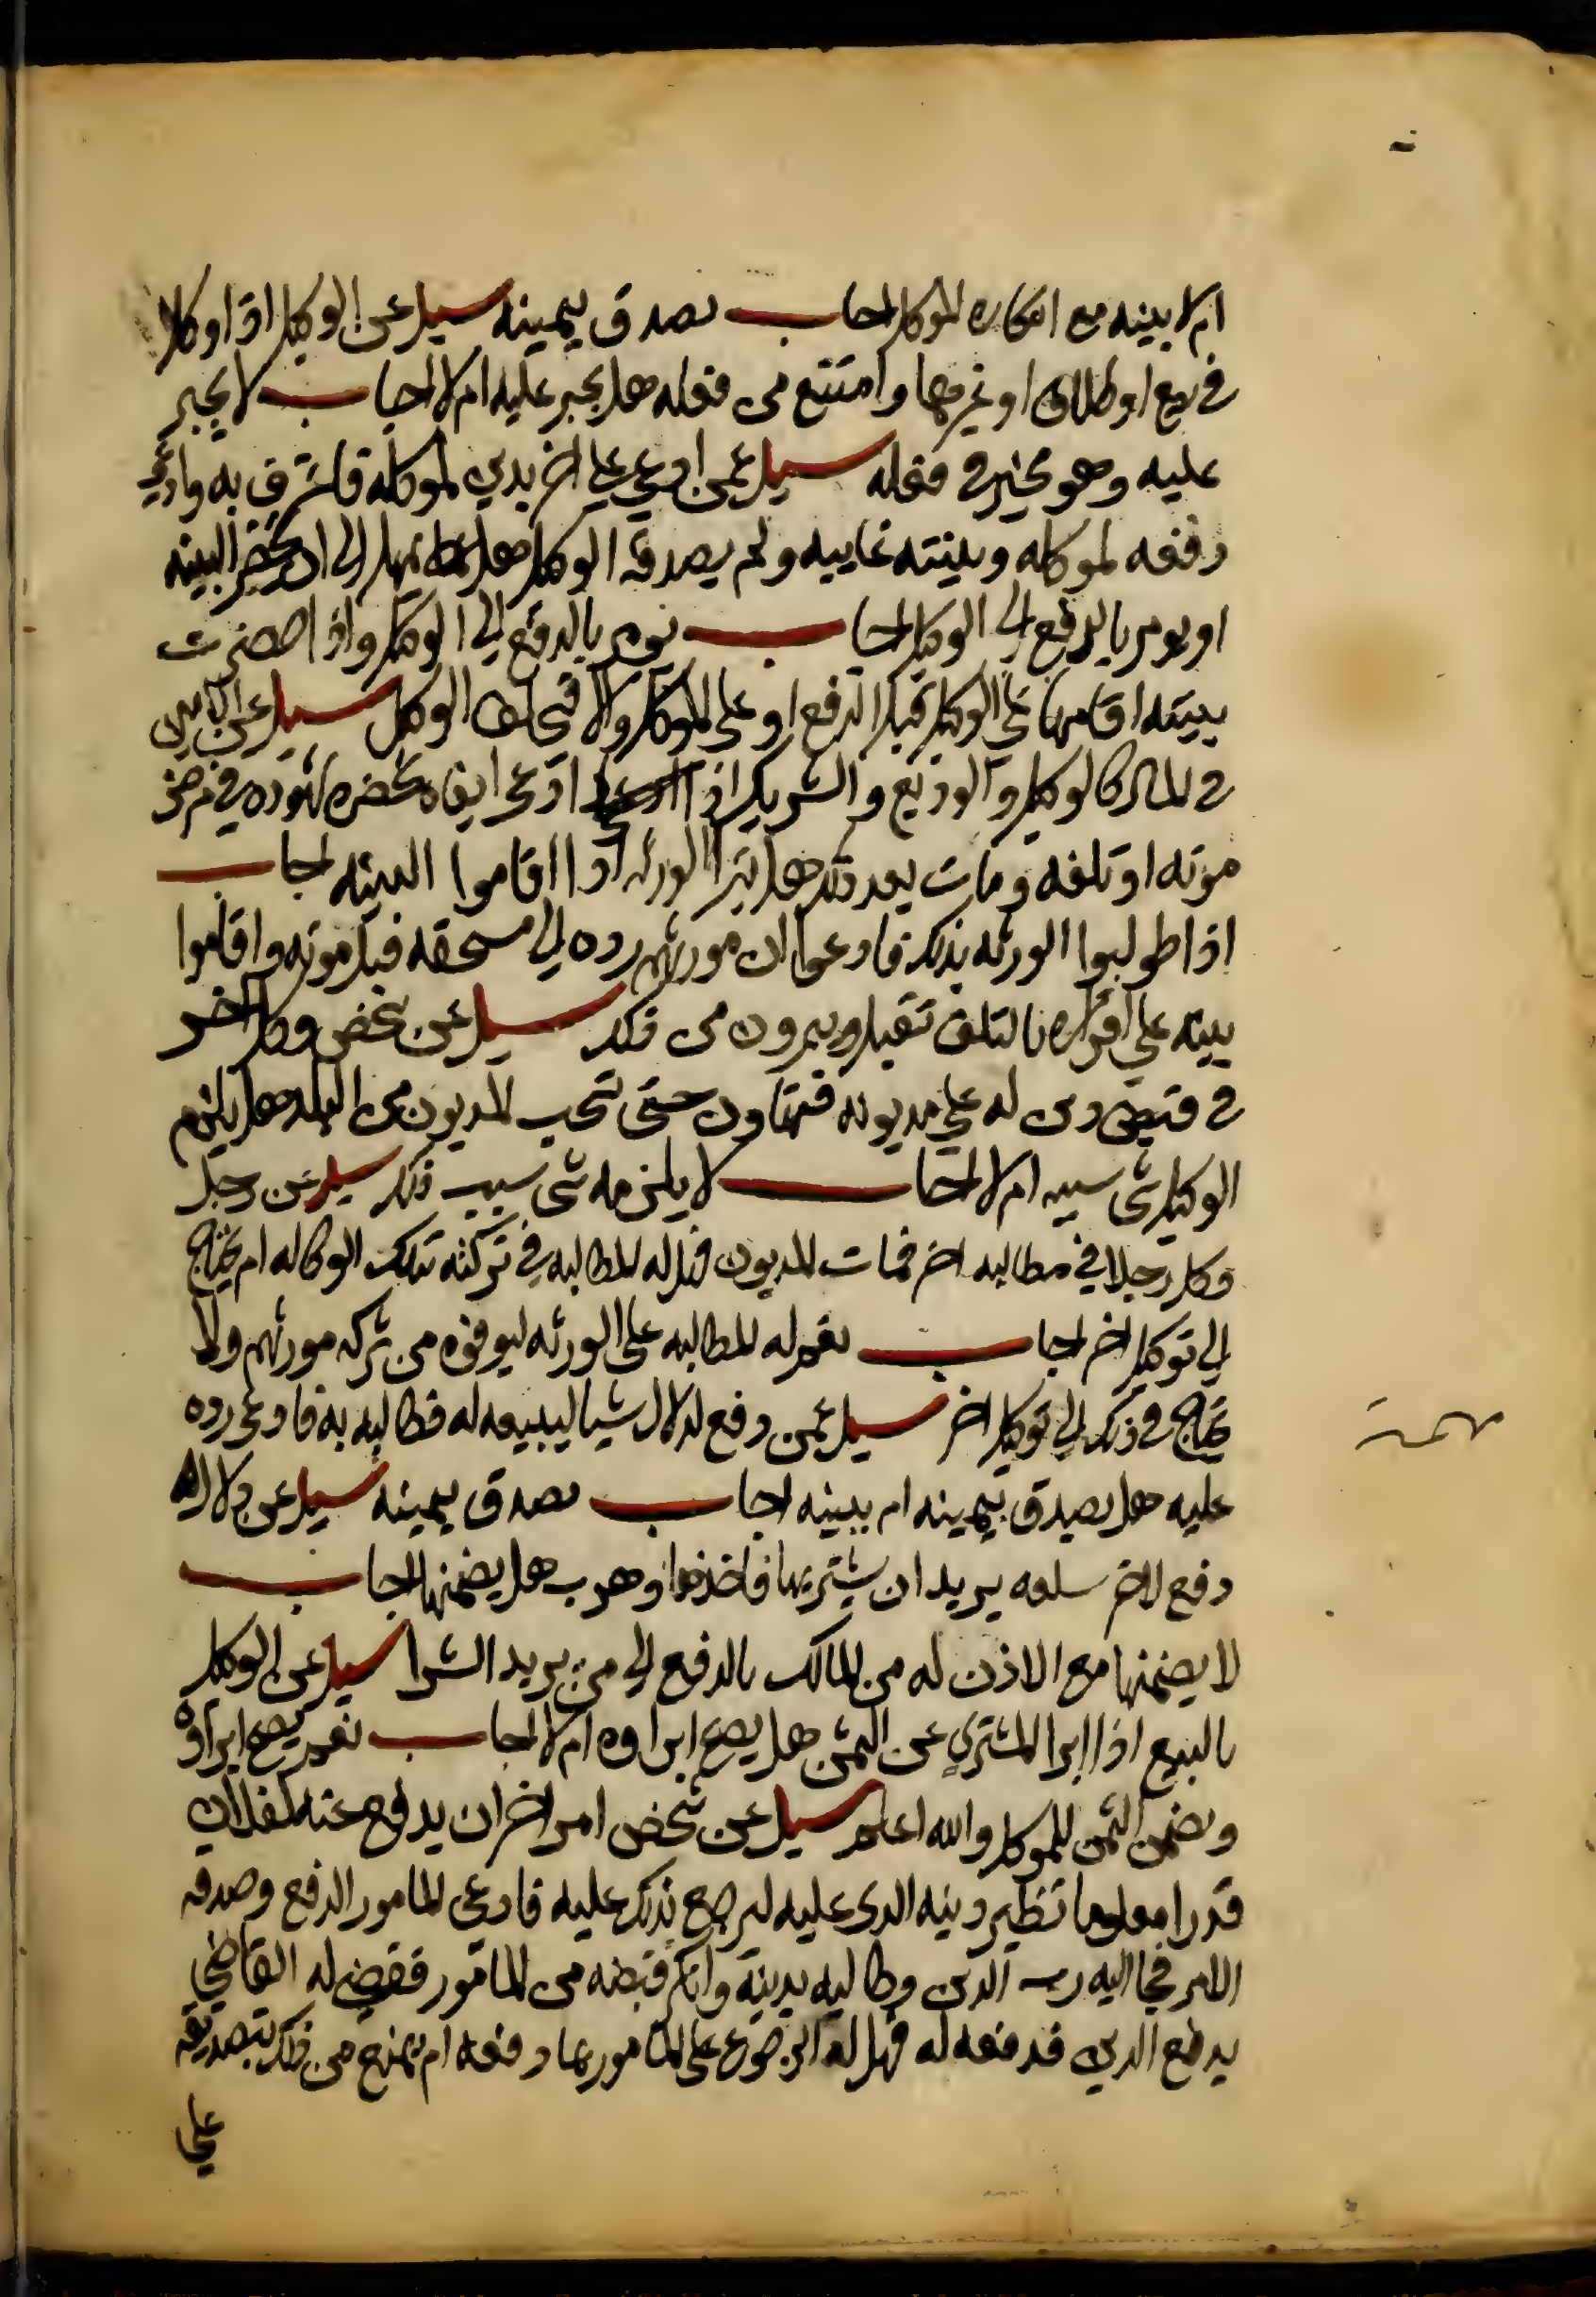 ام لا ببينه مع انكاره الموكل اجاب يصدق بيمينه سيل عن الوكيل اذا وكل
في بيع او طلاق او غيرهما وامتنع من فعله هل يجبر عليه ام لا اجاب لا يجبر
عليه وهو مخير في فعله سيل عمن ادعي علي اخر بدين لموكله فاعترف به وادعي
دفعه لموكله وبينته غايبه ولم يصدقه الوكيل هل يمهل الي ان يحضر البينه
او يومر بالدفع الي الوكيل اجاب يومر بالدفع الي الوكيل واذا احضرت
بينته اقامها علي الوكيل قبل الدفع او علي الموكل والا فيحلف الوكيل سيل عن الامين
في المال كالوكيل والوديع والشريك اذا ادعي ايفاه بحضره شهوده في مرض
موته او تلفه ومات بعد ذلك هل تبرا الورثه اذا اقاموا البينه اجاب
اذا طولبوا الورثه بذلك فادعوا ان مورثهم رده الي مستحقه قبل موته واقاموا
بينه علي اقراره بالتلف تقبل ويبرون من ذلك سيل عن شخص وكل اخر
في قبض دين له علي مديونه فتهاون حتي تسحب المديون من البلد هل يلزم
الوكيل شي بسببه ام لا اجاب لا يلزمه شي بسبب ذلك سيل عن رجل
وكل رجلا في مطالبه اخر فمات المديون فهل له المطالبه في تركته بتلك الوكاله ام يحتاج
الي توكيل اخر اجاب نعم له المطالبه علي الورثه ليوفوه من تركه مورثهم ولا
يحتاج في ذلك الي توكيل اخر سيل عمن دفع لدلال شيا ليبيعه له فطالبه به فادعي رده
عليه هل يصدق بيمينه ام ببينه اجاب يصدق بيمينه سيل عن دلال
دفع لاخر سلعه يريد ان يشتريها فاخذها وهرب هل يضمنها اجاب
لا يضمنها مع الاذن له من المالك بالدفع الي من يريد الشرا سيل عن الوكيل
بالبيع اذا ابرا المشتري عن الثمن هل يصح ابراوه ام لا اجاب نعم يصح ابراوه
ويضمن الثمن للموكل والله اعلم سيل عن شخص امر اخر ان يدفع عنه لفلان
قدرا معلوما نظير دينه الذي عليه ليرجع بذلك عليه فادعي المامور الدفع وصدقه
الامر فجا اليه رب الدين وطالبه بدينه وانكر قبضه من المامور فقضي له القاضي
بدفع الدين فدفعه له فهل له الرجوع علي المامور بما دفعه ام يمنع من ذلك بتصديقه
علي